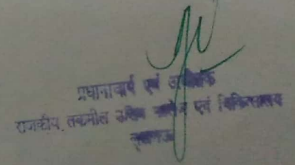 प्रधानाचार्य एवं अधीक्षक
राजकीय तकमील उत्तिब कालेज एवं चिकित्सालय
लखनऊ